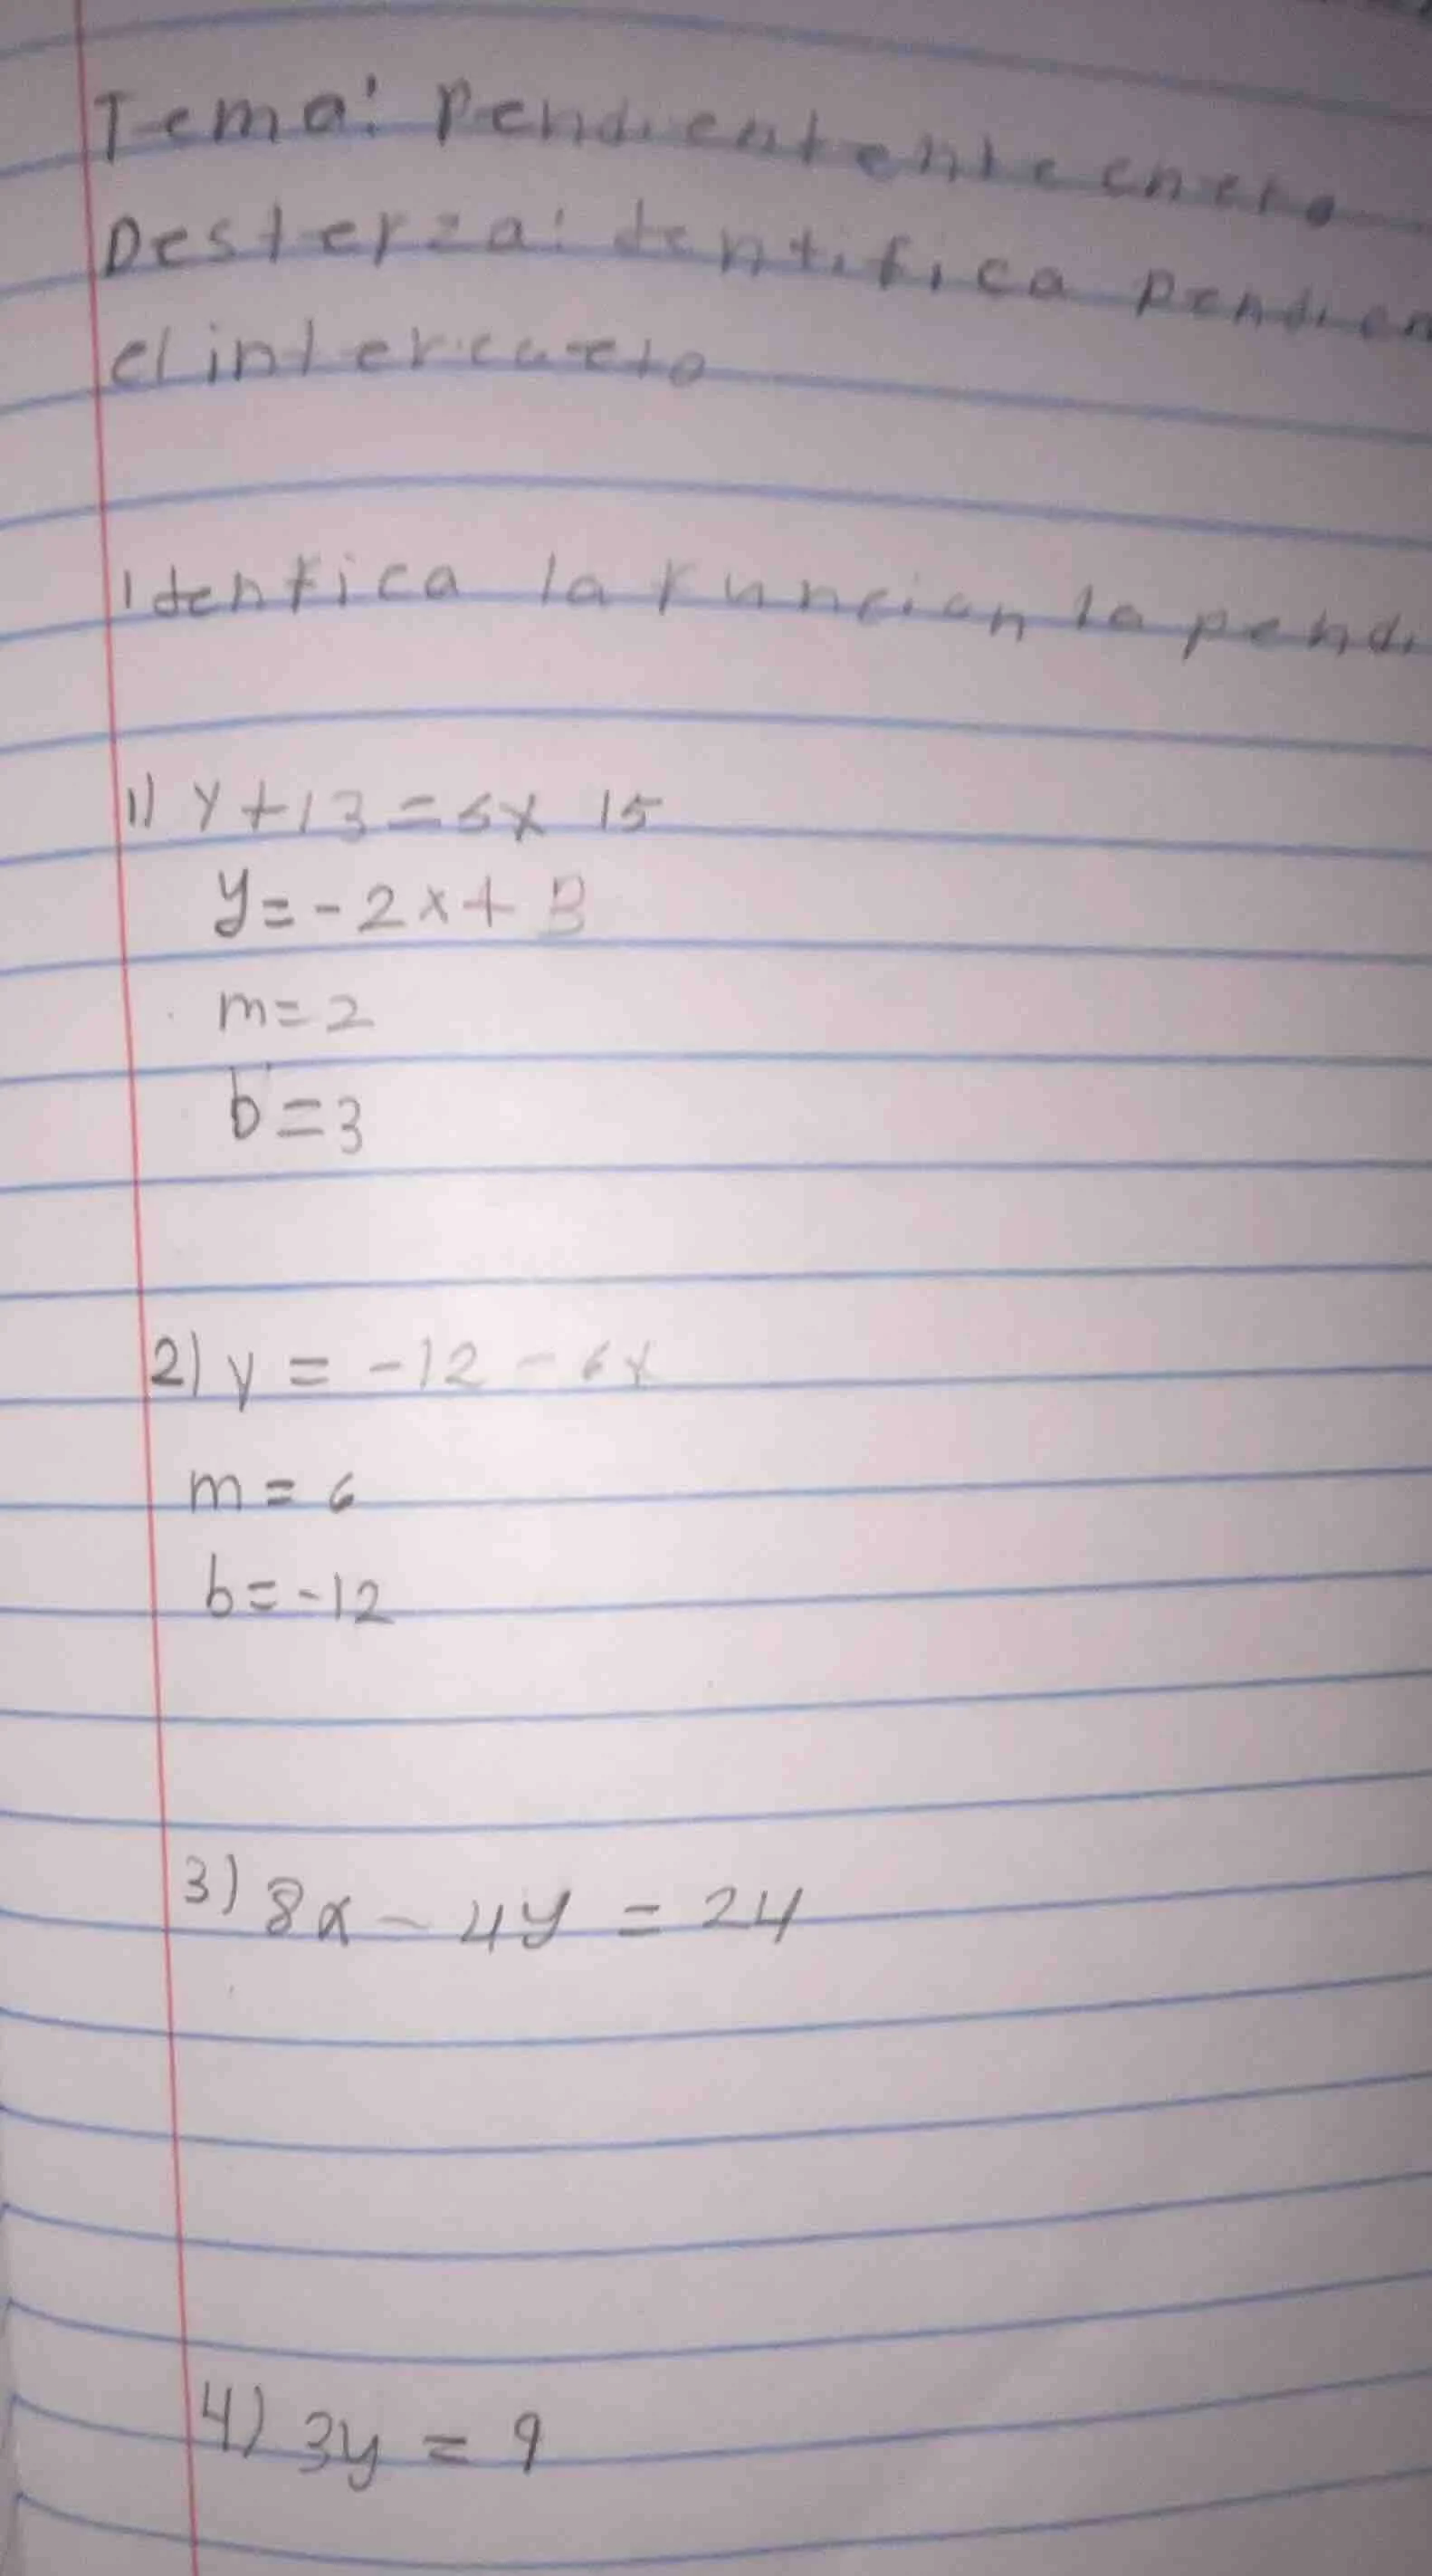 Tema: Pendiente
Desterza: identifica pendien
el intercecto
Identfica la funcion la pendi
1) y + 13 = 5x 15
y = - 2x + 3
m = 2
b = 3
2) y = -12 - 6x
m = 6
b = -12
3) 8x - 4y = 24
4) 3y = 9